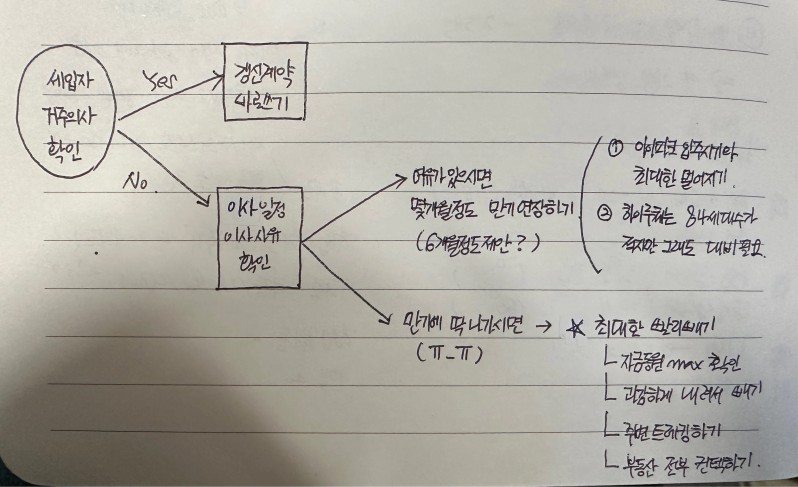 세입자
거주의사
확인
Yes
갱신계약
바로쓰기
No.
이사일정
이사사유
확인
여유가 있으시면
몇개월정도 만기연장하기
(6개월정도제안?)
① 아이파크 입주시기와
최대한 멀어지기.
② 하이루체는 84세대수가
적지만 그래도 대비필요.
만기에 딱 나가시면 → ☆ 최대한 빨리빼기
(ㅠ_ㅠ)
└ 자금동원 max 확인
└ 과감하게 내려서 빼기
└ 주변트래킹하기
└ 부동산 전부 컨택하기.